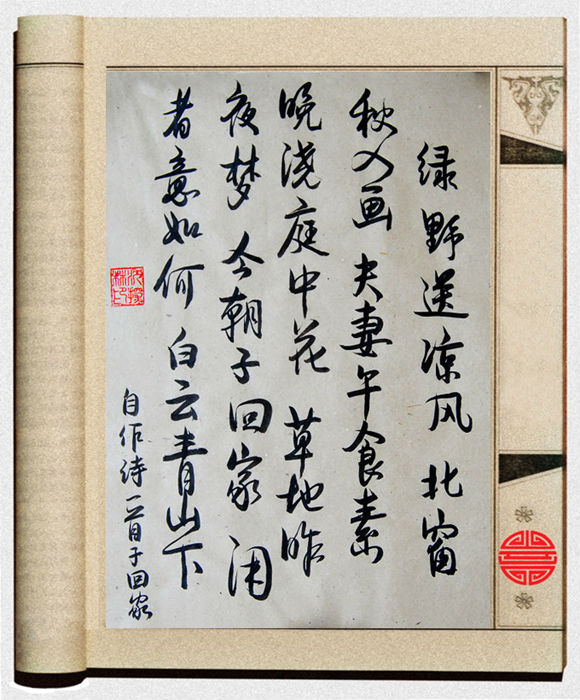 绿野送凉风 北窗
秋入画 夫妻午食素
晚浇庭中花 草地昨
夜梦 今朝子回家
者意如何 白云青山下
自作诗一首子回家